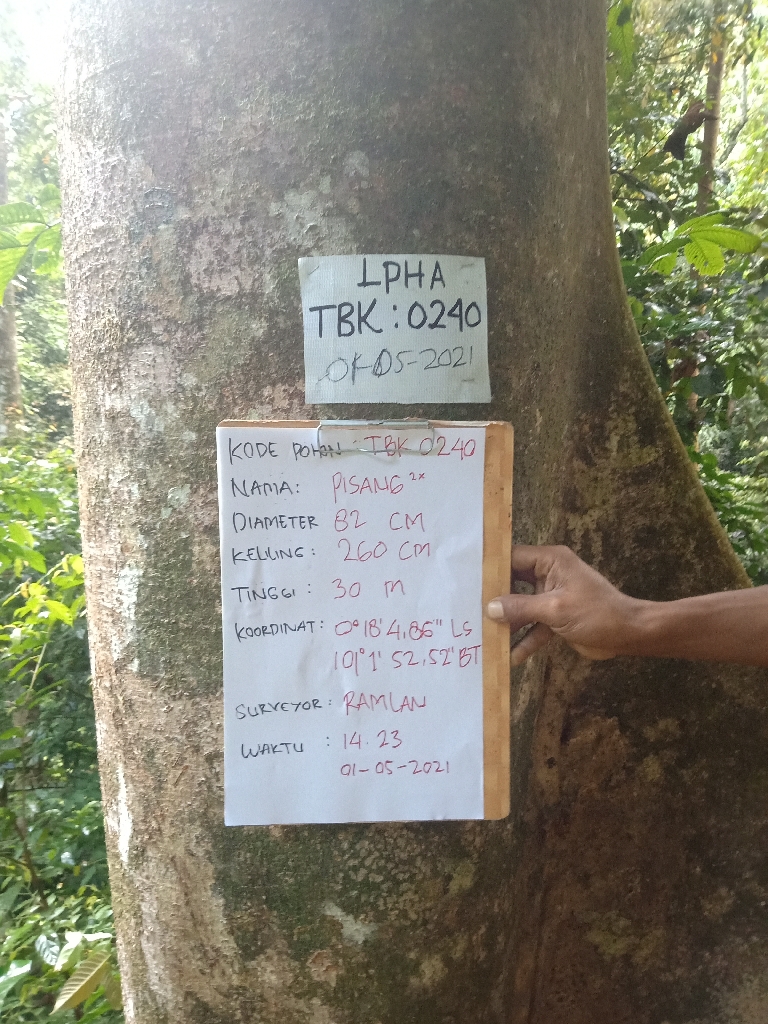 LPHA
TBK : 0240
01-05-2021
KODE POHON : TBK 0240
NAMA: PISANG 2x
DIAMETER 82 CM
KELLING: 260 CM
TINGGI : 30 M
KOORDINAT: 0°18'4,86" LS
101°1' 52,52" BT
SURVEYOR: RAMLAN
WAKTU : 14.23
01-05-2021